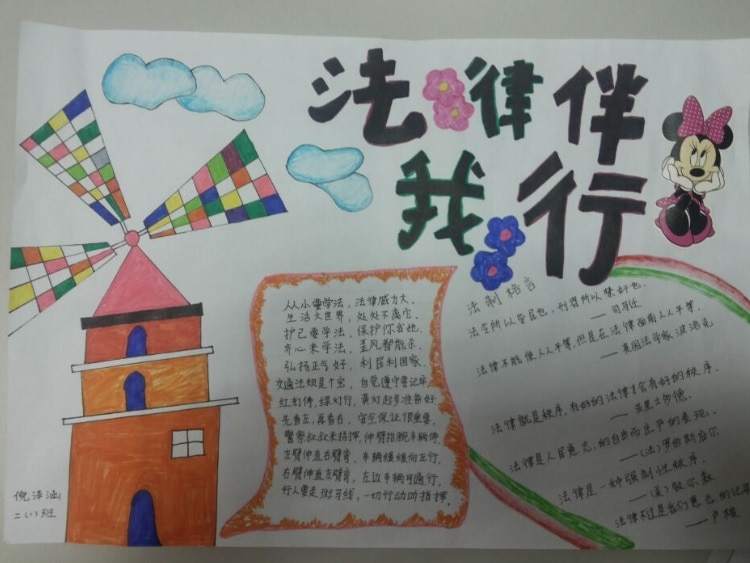 法律伴
我行
从小要学法，法律威力大。
生活大世界，处处不离它。
护己要学法，保护你我他。
齐心来学法，
弘扬正气好，利民利国家。
交通法规是个宝，自觉遵守要记牢。
红灯停，绿灯行，黄灯起步准备好。
先看左，再看右，安全保证很重要。
警察叔叔来指挥，伸臂指挥车辆停。
左臂伸直右臂弯，车辆缓缓向正行。
右臂伸直左臂弯，左边车辆可通行。
行人要走斑马线，一切行动听指挥。
法制格言
法令所以导民也，刑罚所以禁奸也。
——司马迁
法律不能使人人平等，但是在法律面前人人平等。
——英国法学家 波洛克
法律就是秩序，有好的法律才会有好的秩序。
——亚里士多德
法律是人民意志的自由而庄严的表现。
——（法）罗伯斯庇尔
法律是一种强制性秩序。
——（美）凯尔森
法律不过是我们意志的记录
——卢梭
倪
二（1）班